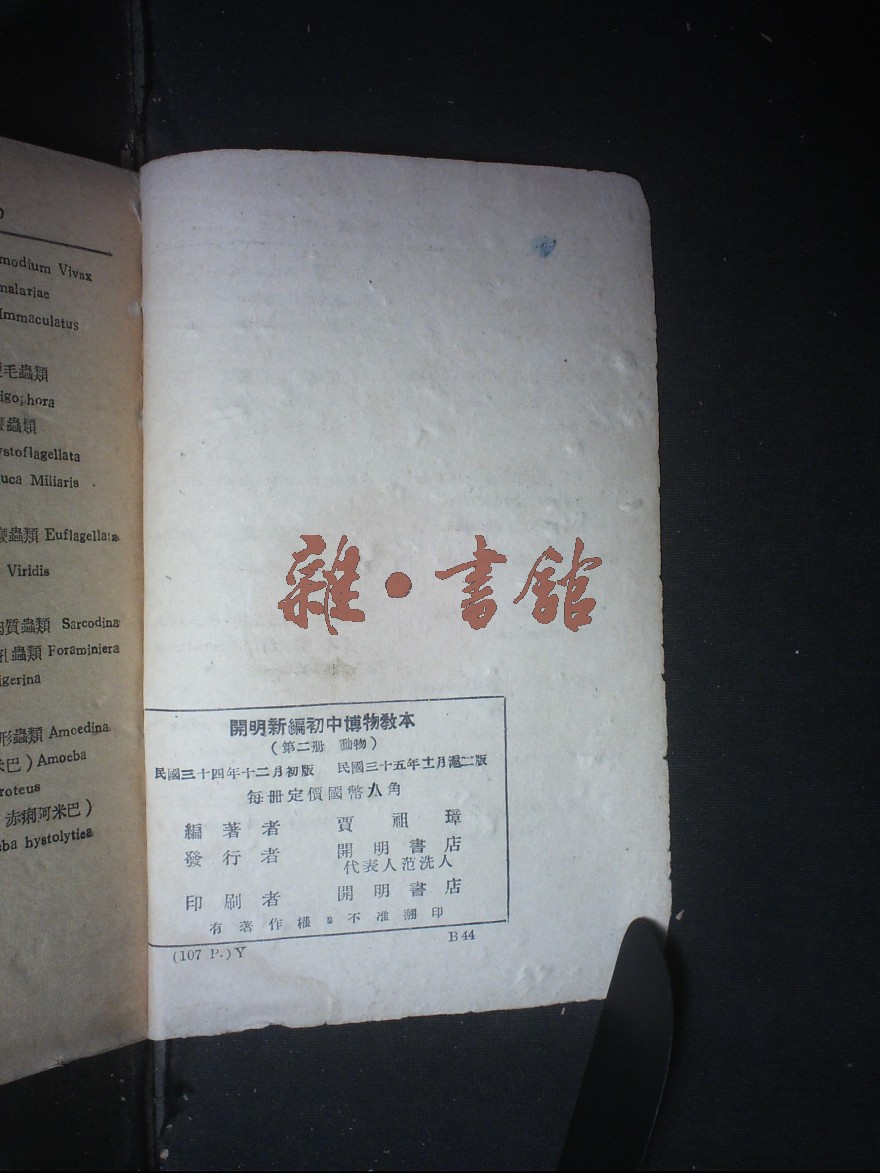 modium Vivax
malariae
Immaculatus
毛蟲類
igophora
蟲類
ystoflagellata
uca Miliaris
蟲類 Euflagellata
Viridis
質蟲類 Sarcodina
孔蟲類 Foraminiera
igerina
形蟲類 Amoedina
米巴）Amoeba
roteus
赤痢阿米巴）
ba hystolytica
雜·書館
開明新編初中博物教本
（第二册 動物）
民國三十四年十二月初版 民國三十五年十一月滬二版
每册定價國幣八角
編著者 賈祖璋
發行者 開明書店
代表人范洗人
印刷者 開明書店
有著作權不准翻印
(107 P.) Y B 44